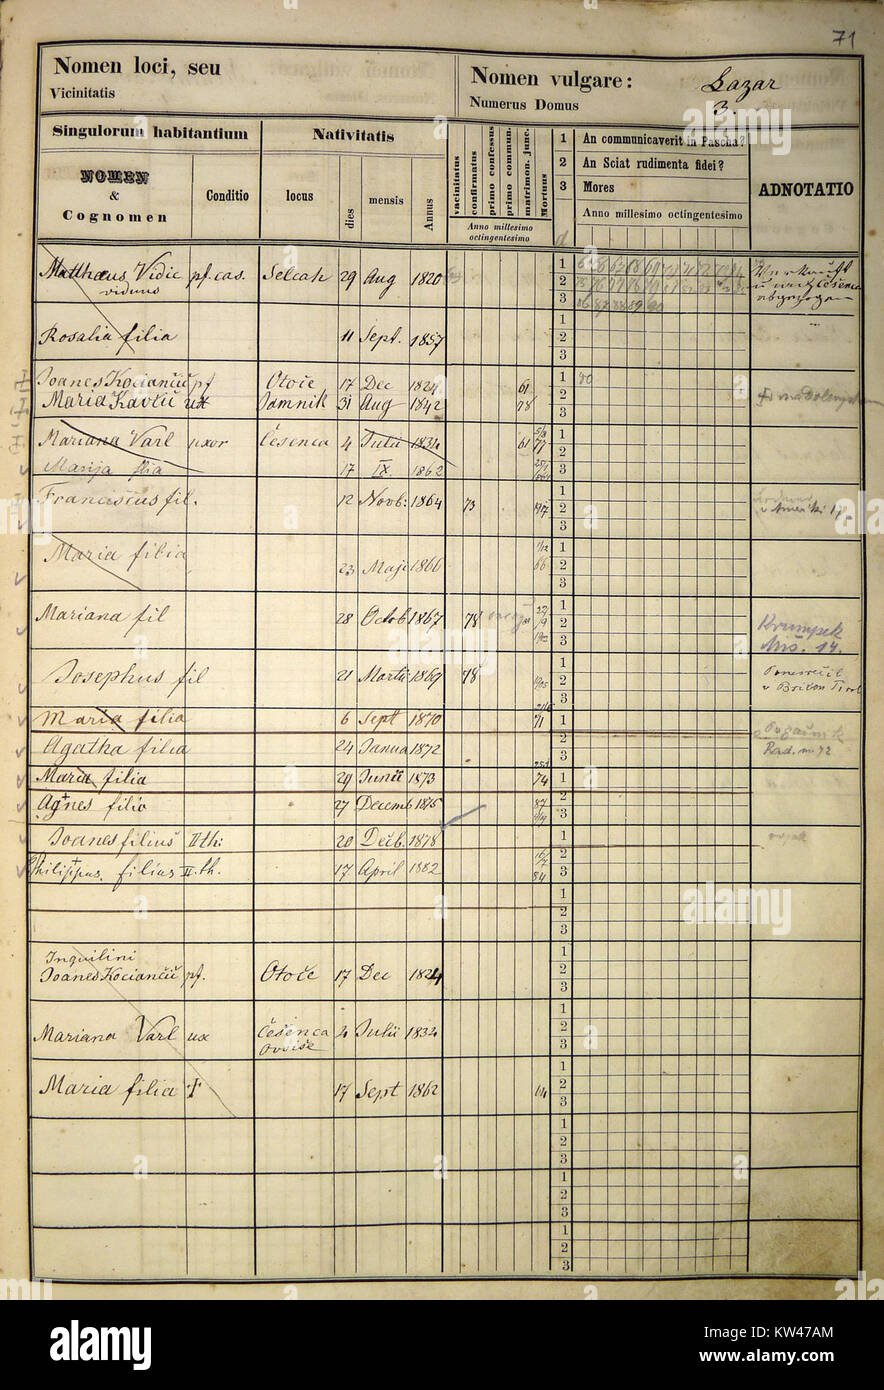 71
Nomen loci, seu
Vicinitatis
Nomen vulgare: Lazar
Numerus Domus 3.
Singulorum habitantium
Nativitatis
NOMEN
&
Cognomen
Conditio
locus
dies
mensis
Annus
vacinitatus
confirmatus
primo confessus
primo commun.
matrimon. junc.
Mortuus
Anno millesimo
octingentesimo
1 An communicaverit in Pascha?
2 An Sciat rudimenta fidei?
3 Mores
Anno millesimo octingentesimo
ADNOTATIO
Matthaeus Vidic pf. cas. Selcah 29 Aug 1820 1
viduus 2
3
Rosalia filia 11 Sept. 1857 1
2
3
Joanes Kociančič pf Otoče 17 Dec 1824 61 1 80
Maria Kavčič ux Jamnik 31 Aug 1842 78 2
3
Mariana Varl uxor Češenca 4 Julii 1834 61 77 1
2
Marija filia 17 IX. 1862 3
Franciscus fil. 12 Novb: 1864 73 1
2 v Ameriki
3
Maria filia 1
23 Maji 1866 66 2
3
Mariana fil 28 Octob 1867 78 1
2 Krumpek
3 Miš. 14.
Josephus fil 21 Martii 1869 78 1
2 v Brixen
3
Maria filia 6 Sept 1870 71 1
Agatha filia 24 Janua 1872 2 Pogačnik
3 Rad. 72
Maria filia 29 Junii 1873 74 1
Agnes filia 27 Decemb 1875 87 2
3
Joanes filius II th: 20 Decb. 1878 1
Philippus filius II. th. 17 April 1882 84 2
3
1
2
3
Inquilini 1
Joanes Kociančič pf. Otoče 17 Dec 1824 2
3
Mariana Varl ux Češenca 4 Julii 1834 1
Ovsiše 2
3
Maria filia † 17 Sept 1862 1
2
3
1
2
3
1
2
3
1
2
3
alamy
alamy
Image ID: KW47AM
www.alamy.com